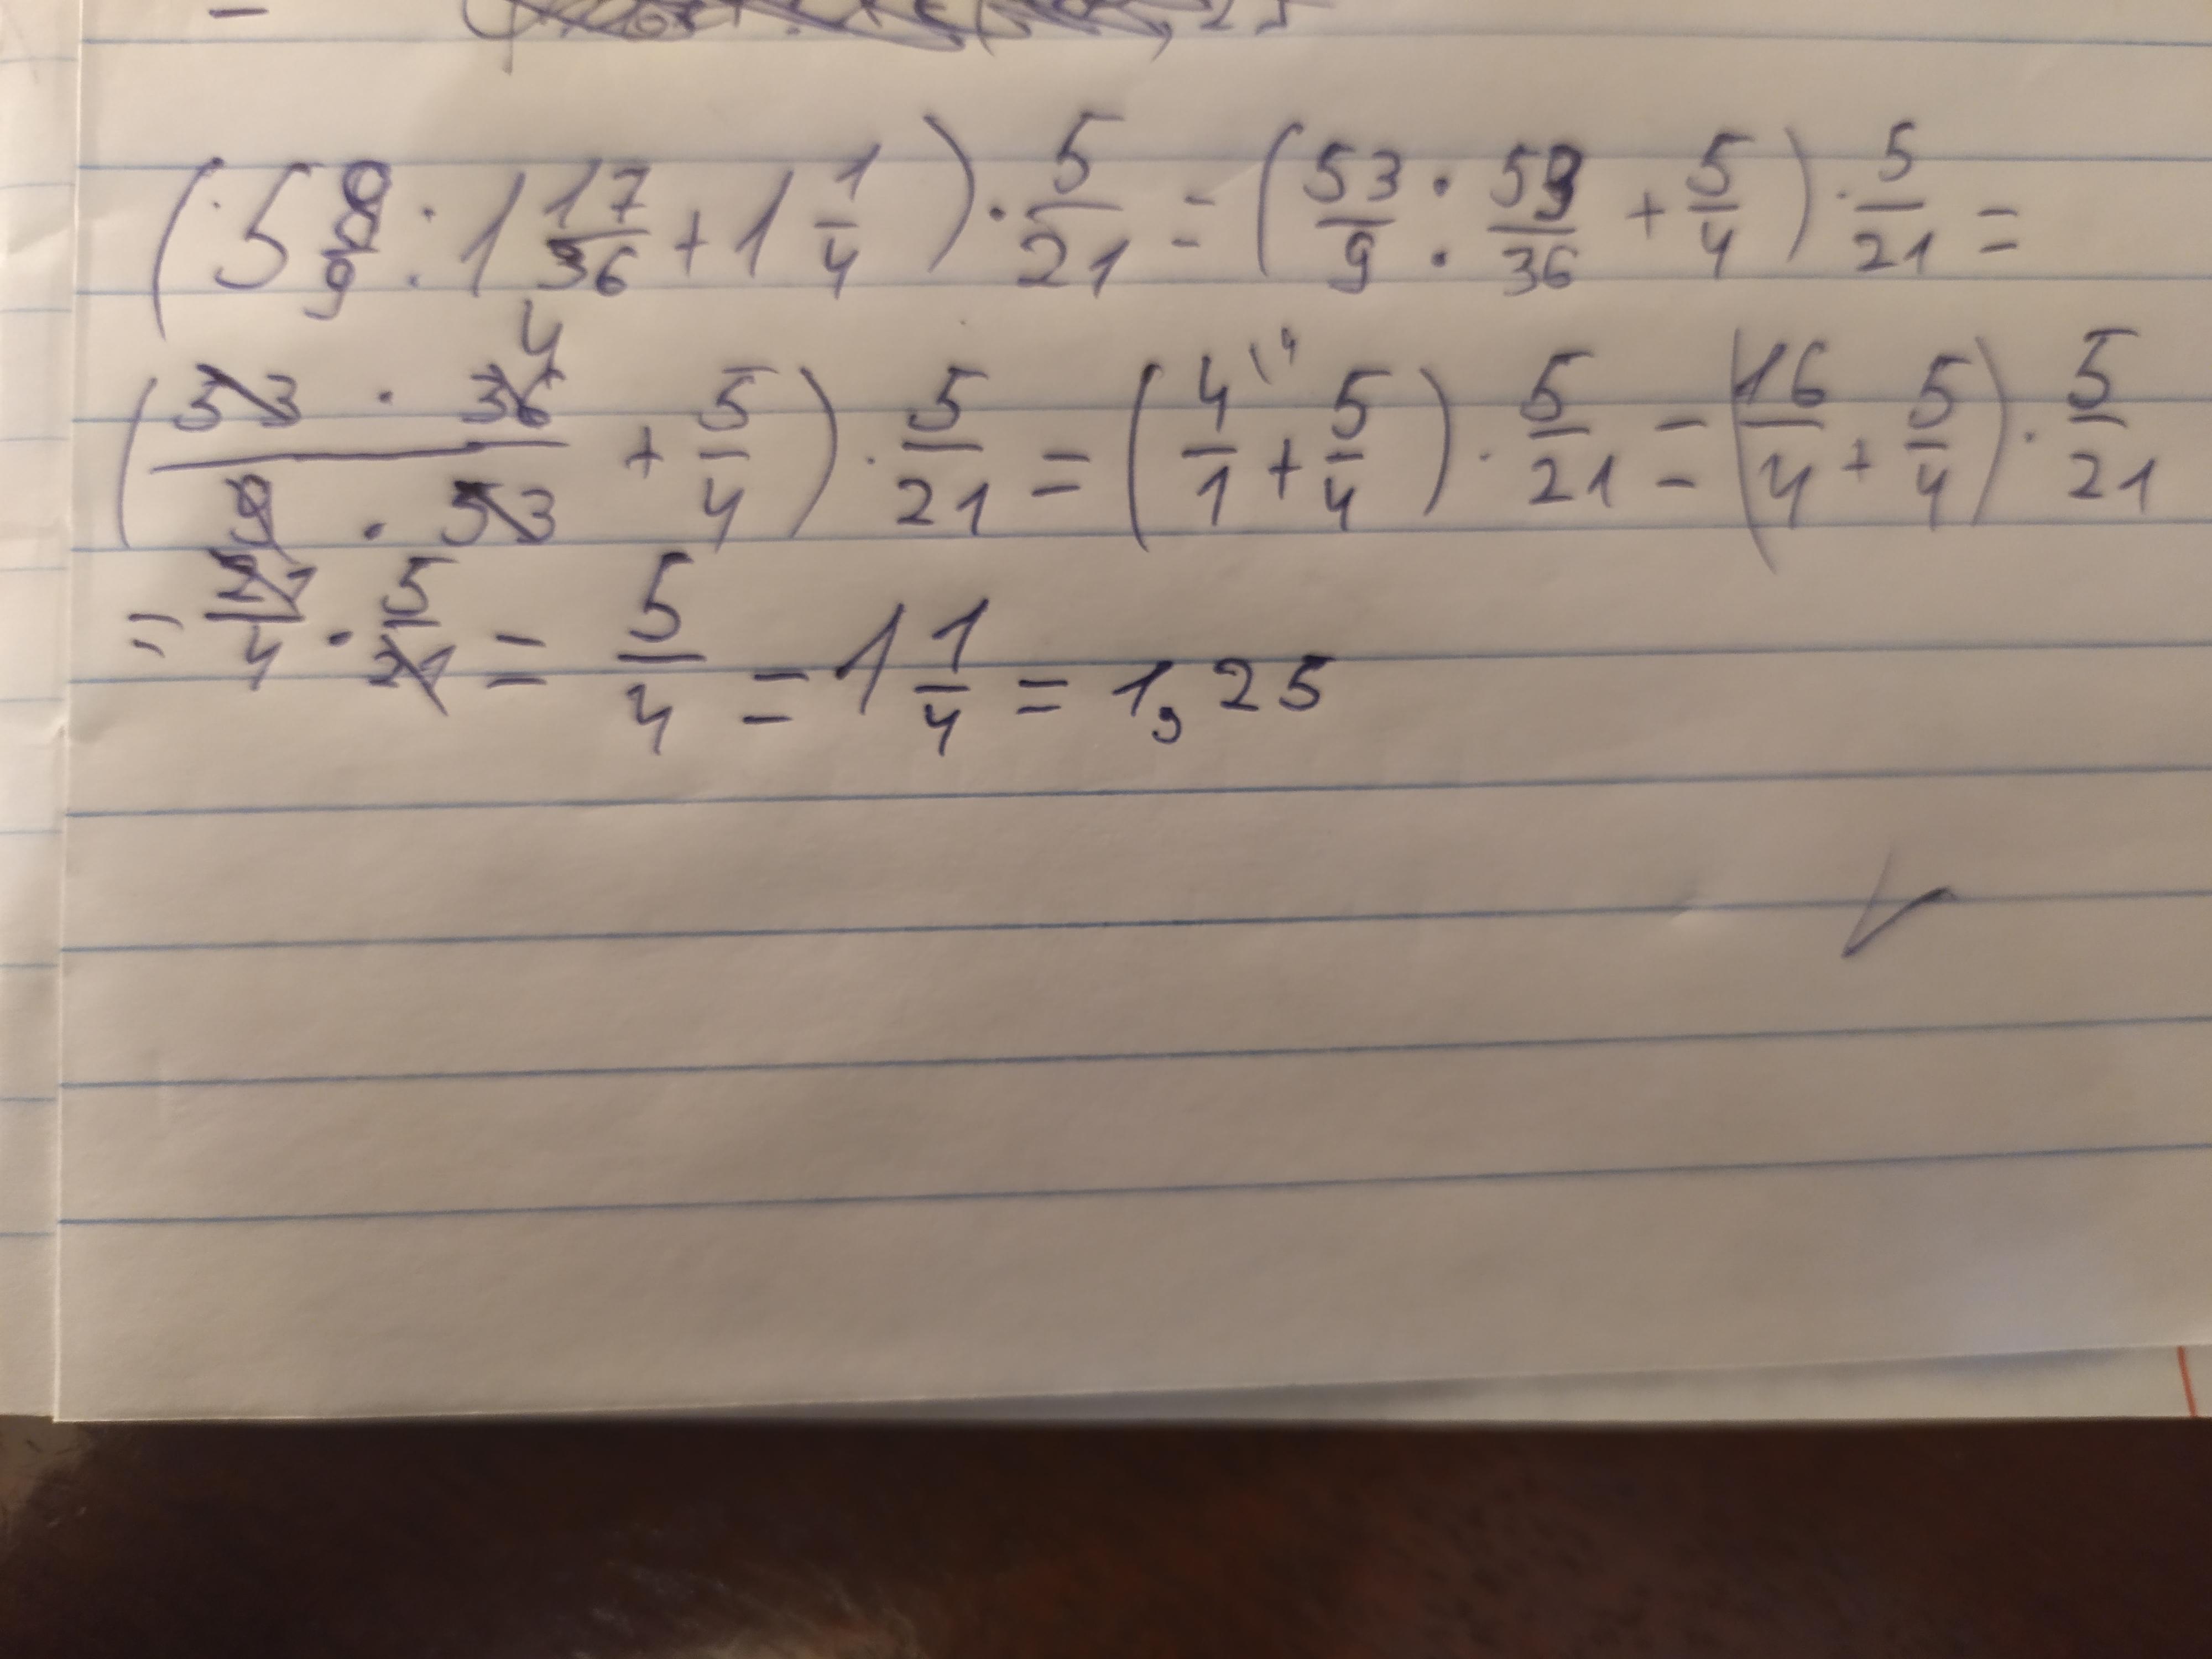 (5 8/9 : 1 17/36 + 1 1/4) · 5/21 = (53/9 : 53/36 + 5/4) · 5/21 =
(53 · 36 4 / 9 · 53 + 5/4) · 5/21 = (4/1 \4 + 5/4) · 5/21 = (16/4 + 5/4) · 5/21
= 21/4 · 5/21 = 5/4 = 1 1/4 = 1,25